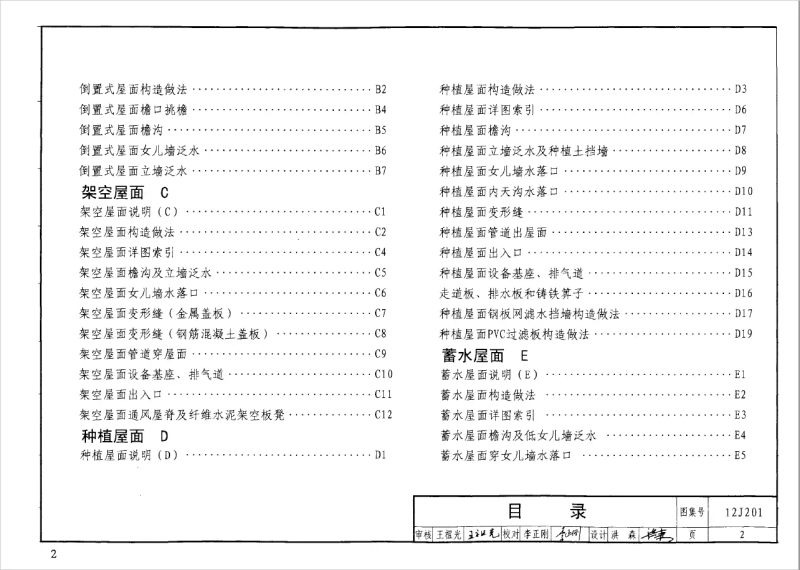 倒置式屋面构造做法 ································ B2
倒置式屋面檐口挑檐 ································ B4
倒置式屋面檐沟 ································ B5
倒置式屋面女儿墙泛水 ································ B6
倒置式屋面立墙泛水 ································ B7
架空屋面 C
架空屋面说明(C) ································ C1
架空屋面构造做法 ································ C2
架空屋面详图索引 ································ C4
架空屋面檐沟及立墙泛水 ································ C5
架空屋面女儿墙水落口 ································ C6
架空屋面变形缝(金属盖板) ································ C7
架空屋面变形缝(钢筋混凝土盖板) ································ C8
架空屋面管道穿屋面 ································ C9
架空屋面设备基座、排气道 ································ C10
架空屋面出入口 ································ C11
架空屋面通风屋脊及纤维水泥架空板凳 ································ C12
种植屋面 D
种植屋面说明(D) ································ D1
种植屋面构造做法 ································ D3
种植屋面详图索引 ································ D6
种植屋面檐沟 ································ D7
种植屋面立墙泛水及种植土挡墙 ································ D8
种植屋面女儿墙水落口 ································ D9
种植屋面内天沟水落口 ································ D10
种植屋面变形缝 ································ D11
种植屋面管道出屋面 ································ D13
种植屋面出入口 ································ D14
种植屋面设备基座、排气道 ································ D15
走道板、排水板和铸铁箅子 ································ D16
种植屋面钢板网滤水挡墙构造做法 ································ D17
种植屋面PVC过滤板构造做法 ································ D19
蓄水屋面 E
蓄水屋面说明(E) ································ E1
蓄水屋面构造做法 ································ E2
蓄水屋面详图索引 ································ E3
蓄水屋面檐沟及低女儿墙泛水 ································ E4
蓄水屋面穿女儿墙水落口 ································ E5
目 录 图集号 12J201
审核 王祖光 校对 李正刚 设计 洪森 页 2
2